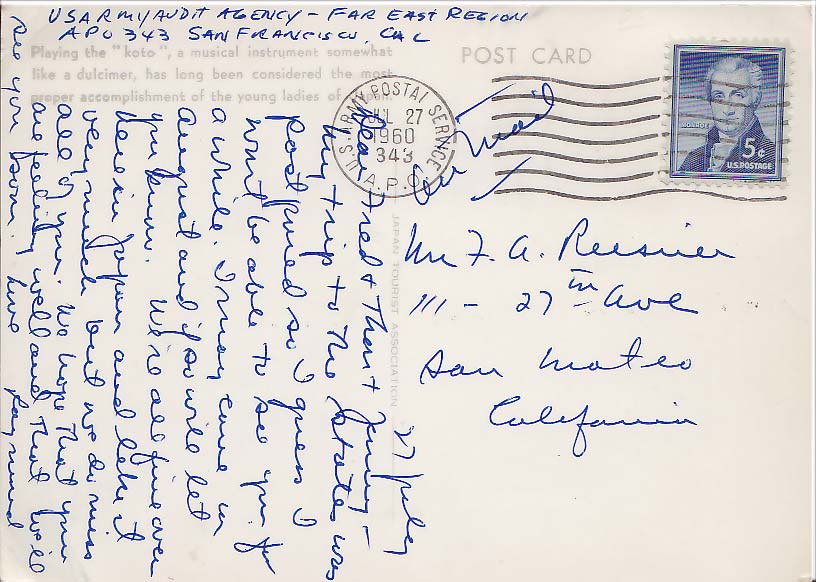 US ARMY AUDIT AGENCY - FAR EAST REGION
APO 343 SAN FRANCISCO, CAL
Playing the "koto", a musical instrument somewhat
like a dulcimer, has long been considered the most
proper accomplishment of the young ladies of Japan.
POST CARD
U.S. ARMY POSTAL SERVICE
JUL 27
1960
343
A.P.O.
MONROE
5¢
U.S. POSTAGE
Air Mail
Mr F. A. Reesnier
111 - 27th Ave
San Mateo
California
JAPAN TOURIST ASSOCIATION
27 July
Dear Fred & & Jenny -
My trip to the States was
postponed so I guess I
won't be able to see you for
a while. I may come in
August and if so will let
you know. We're all fine over
here in Japan and like it
very much but we do miss
all of you. We hope that you
are feeling well and that we'll
see you soon. Love Raymond